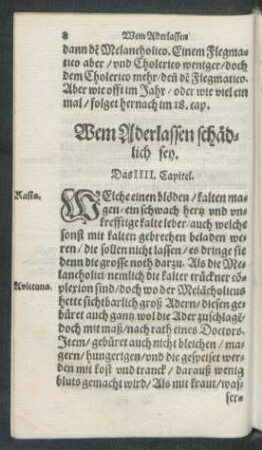 8 Wem Aderlassen
dann dē Melancholico. Einem Flegma-
tico aber / vnd Cholerico weniger / doch
dem Cholerico mehr / deñ dē Flegmatico.
Aber wie offt im Jahr / oder wie viel ein
mal / folget hernach im 18. cap.
Wem Aderlassen schäd-
lich sey.
Das IIII. Capitel.
Rasis.
WElche einen blöden / kalten ma-
gen / ein schwach hertz vnd vn-
krefftige kalte leber / auch welche
sonst mit kalten gebrechen beladen we-
ren / die sollen nicht lassen / es dringe sie
denn die grosse noth darzu. Als die Me-
lancholici nemlich die kalter trückner cō-
Auicenna.
plexion sind / doch wo der Melācholicus
hette sichtbarlich groß Adern / diesen ge-
büret auch gantz wol die Ader zuschlagē /
doch mit maß / nach rath eines Doctors.
Item / gebüret auch nicht bleichen / ma-
gern / hungerigen / vnd die gespeiset wer-
den mit kost vnd tranck / darauß wenig
bluts gemacht wird / Als mit kraut / was-
ser-